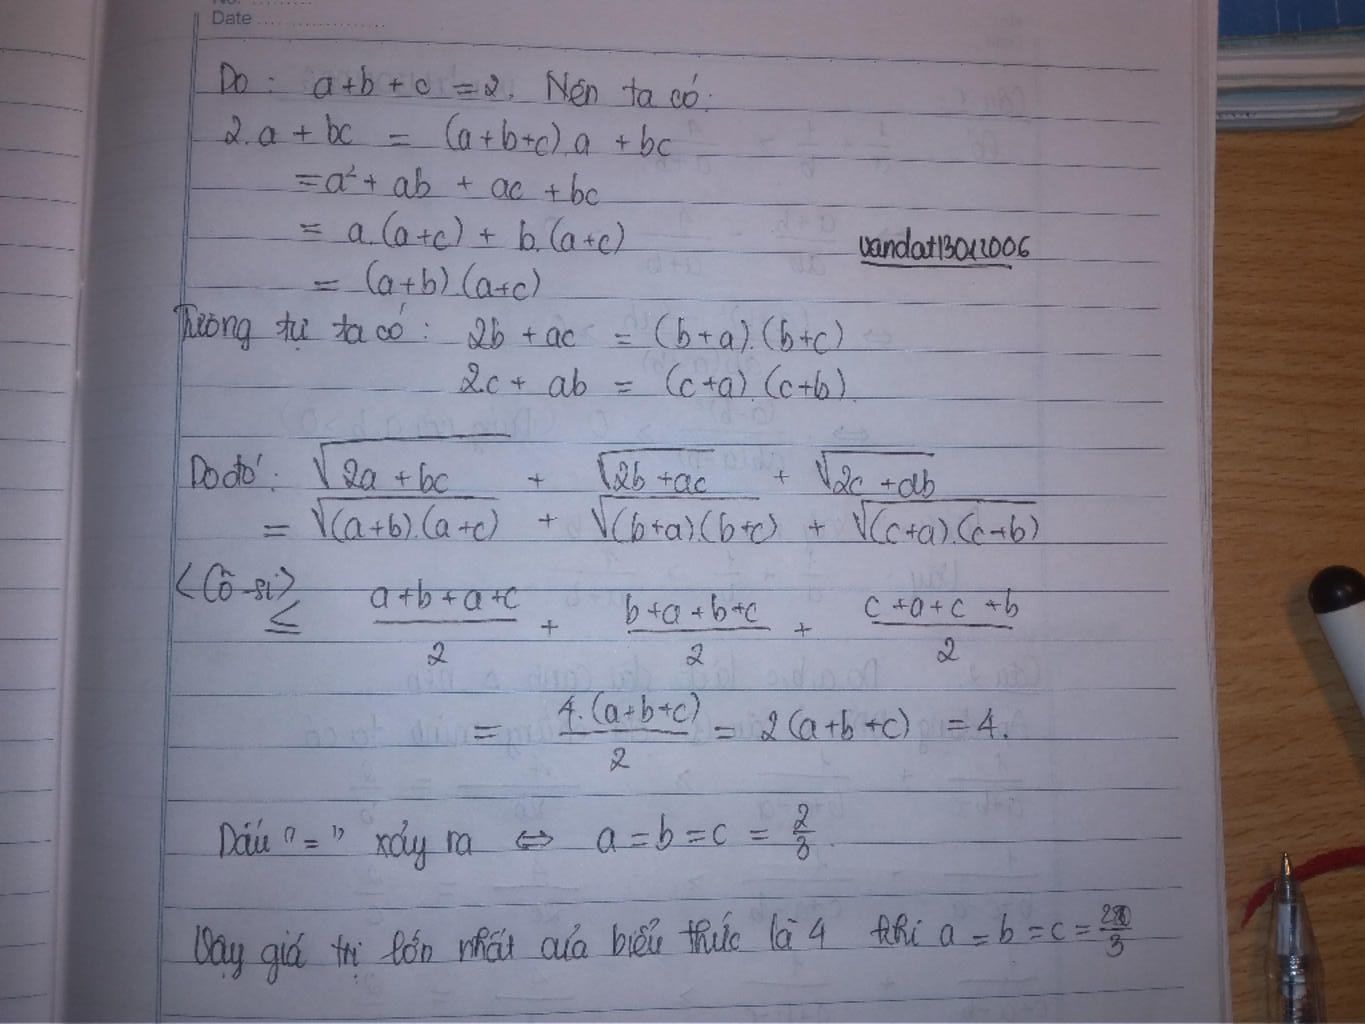 No. ............
Date ....................
Do : a+b+c = 2. Nên ta có:
2.a + bc = (a+b+c).a + bc
= a² + ab + ac + bc
= a.(a+c) + b.(a+c)
vandat13012006
= (a+b).(a+c)
Tương tự ta có: 2b + ac = (b+a).(b+c)
2c + ab = (c+a).(c+b).
Do đó: √(2a + bc) + √(2b + ac) + √(2c + ab)
= √((a+b).(a+c)) + √((b+a).(b+c)) + √((c+a).(c+b))
<Cô-si> ≤ (a+b+a+c)/2 + (b+a+b+c)/2 + (c+a+c+b)/2
= 4.(a+b+c)/2 = 2(a+b+c) = 4.
Dấu "=" xảy ra ⇔ a = b = c = 2/3.
Vậy giá trị lớn nhất của biểu thức là 4 khi a = b = c = 2/3